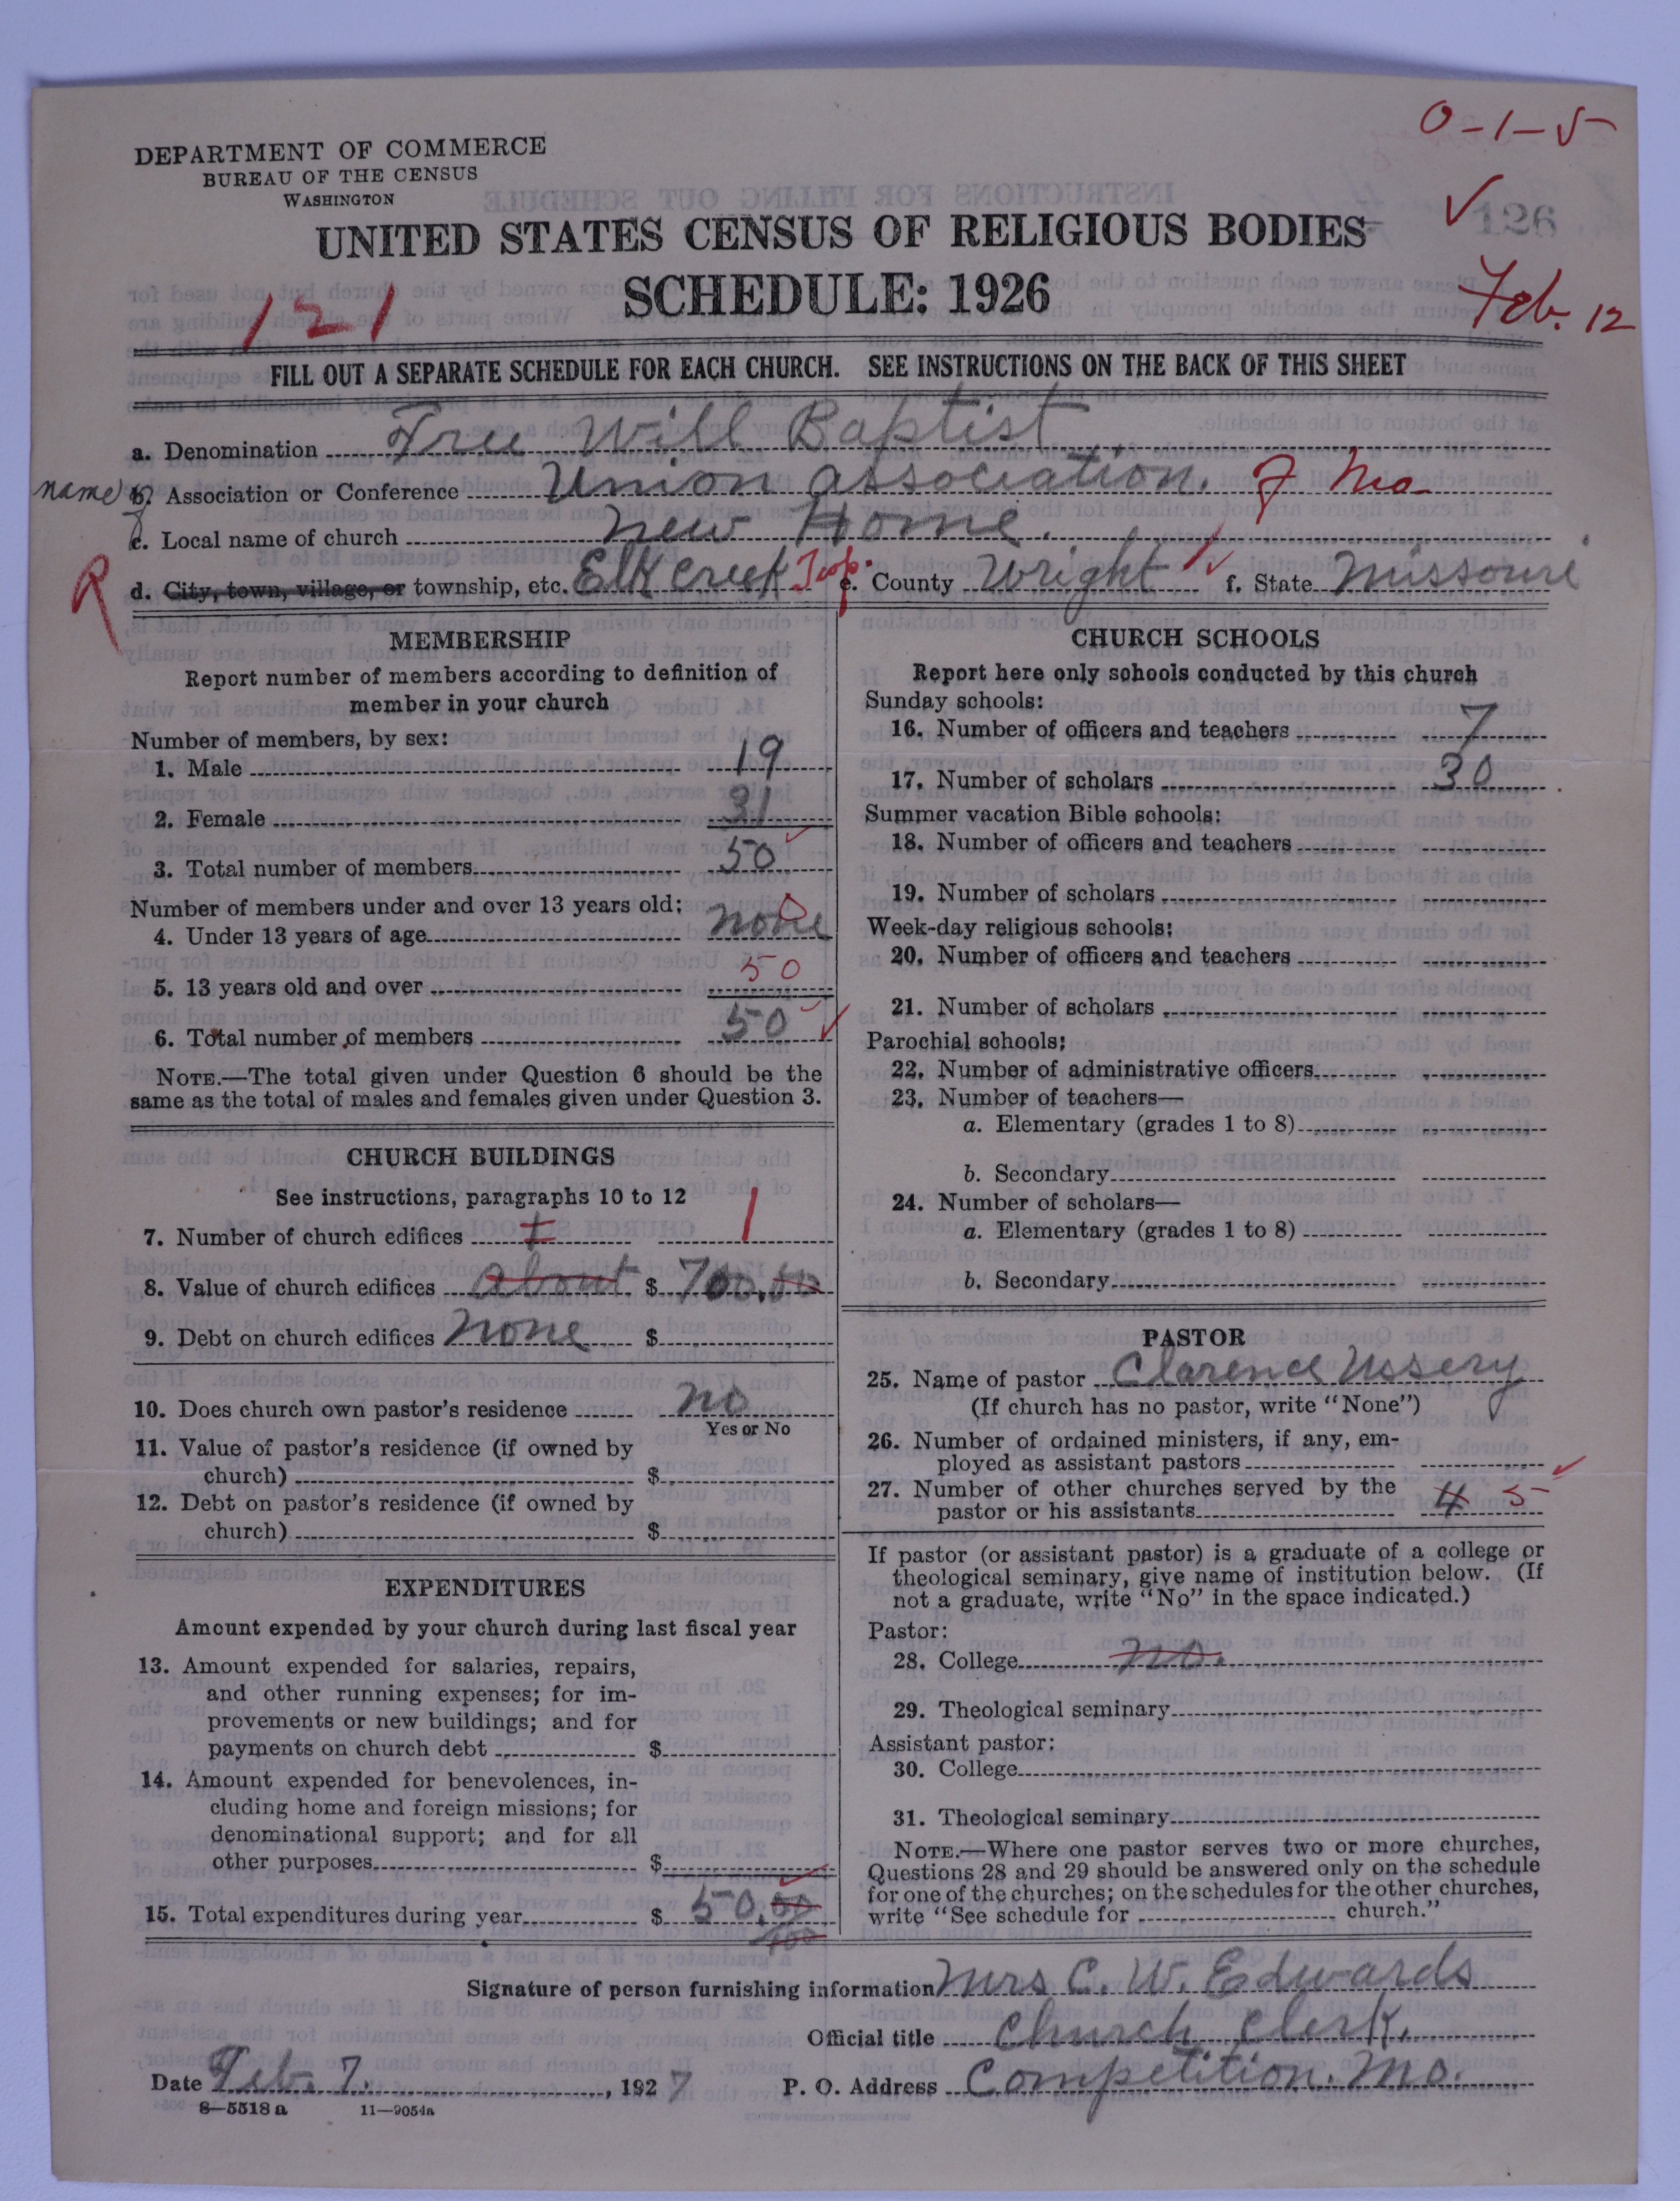 0-1-5
DEPARTMENT OF COMMERCE
BUREAU OF THE CENSUS
WASHINGTON
✓ 126
UNITED STATES CENSUS OF RELIGIOUS BODIES
SCHEDULE: 1926
121
Feb. 12
FILL OUT A SEPARATE SCHEDULE FOR EACH CHURCH. SEE INSTRUCTIONS ON THE BACK OF THIS SHEET
a. Denomination Free Will Baptist
name of b. Association or Conference Union association. of Mo.
c. Local name of church New Home.
R d. City, town, village, or township, etc. Elk Creek Twp. e. County Wright f. State Missouri
MEMBERSHIP
Report number of members according to definition of
member in your church
Number of members, by sex:
1. Male 19
2. Female 31
3. Total number of members 50
Number of members under and over 13 years old:
4. Under 13 years of age none 0
5. 13 years old and over 50
6. Total number of members 50 ✓
NOTE.—The total given under Question 6 should be the
same as the total of males and females given under Question 3.
CHURCH BUILDINGS
See instructions, paragraphs 10 to 12
7. Number of church edifices 1 1
8. Value of church edifices about $ 700.00
9. Debt on church edifices None $
10. Does church own pastor's residence no
Yes or No
11. Value of pastor's residence (if owned by
church) $
12. Debt on pastor's residence (if owned by
church) $
EXPENDITURES
Amount expended by your church during last fiscal year
13. Amount expended for salaries, repairs,
and other running expenses; for im-
provements or new buildings; and for
payments on church debt $
14. Amount expended for benevolences, in-
cluding home and foreign missions; for
denominational support; and for all
other purposes $
15. Total expenditures during year $ 50.00
100
CHURCH SCHOOLS
Report here only schools conducted by this church
Sunday schools:
16. Number of officers and teachers 7
17. Number of scholars 30
Summer vacation Bible schools:
18. Number of officers and teachers
19. Number of scholars
Week-day religious schools:
20. Number of officers and teachers
21. Number of scholars
Parochial schools:
22. Number of administrative officers
23. Number of teachers—
a. Elementary (grades 1 to 8)
b. Secondary
24. Number of scholars—
a. Elementary (grades 1 to 8)
b. Secondary
PASTOR
25. Name of pastor Clarence Ussery
(If church has no pastor, write "None")
26. Number of ordained ministers, if any, em-
ployed as assistant pastors
27. Number of other churches served by the
pastor or his assistants 4 5
If pastor (or assistant pastor) is a graduate of a college or
theological seminary, give name of institution below. (If
not a graduate, write "No" in the space indicated.)
Pastor:
28. College no.
29. Theological seminary
Assistant pastor:
30. College
31. Theological seminary
NOTE.—Where one pastor serves two or more churches,
Questions 28 and 29 should be answered only on the schedule
for one of the churches; on the schedules for the other churches,
write "See schedule for church."
Signature of person furnishing information Mrs C. W. Edwards
Official title Church Clerk.
Date Feb. 7. , 1927 P. O. Address Competition. Mo.
8—5518a 11—9054a